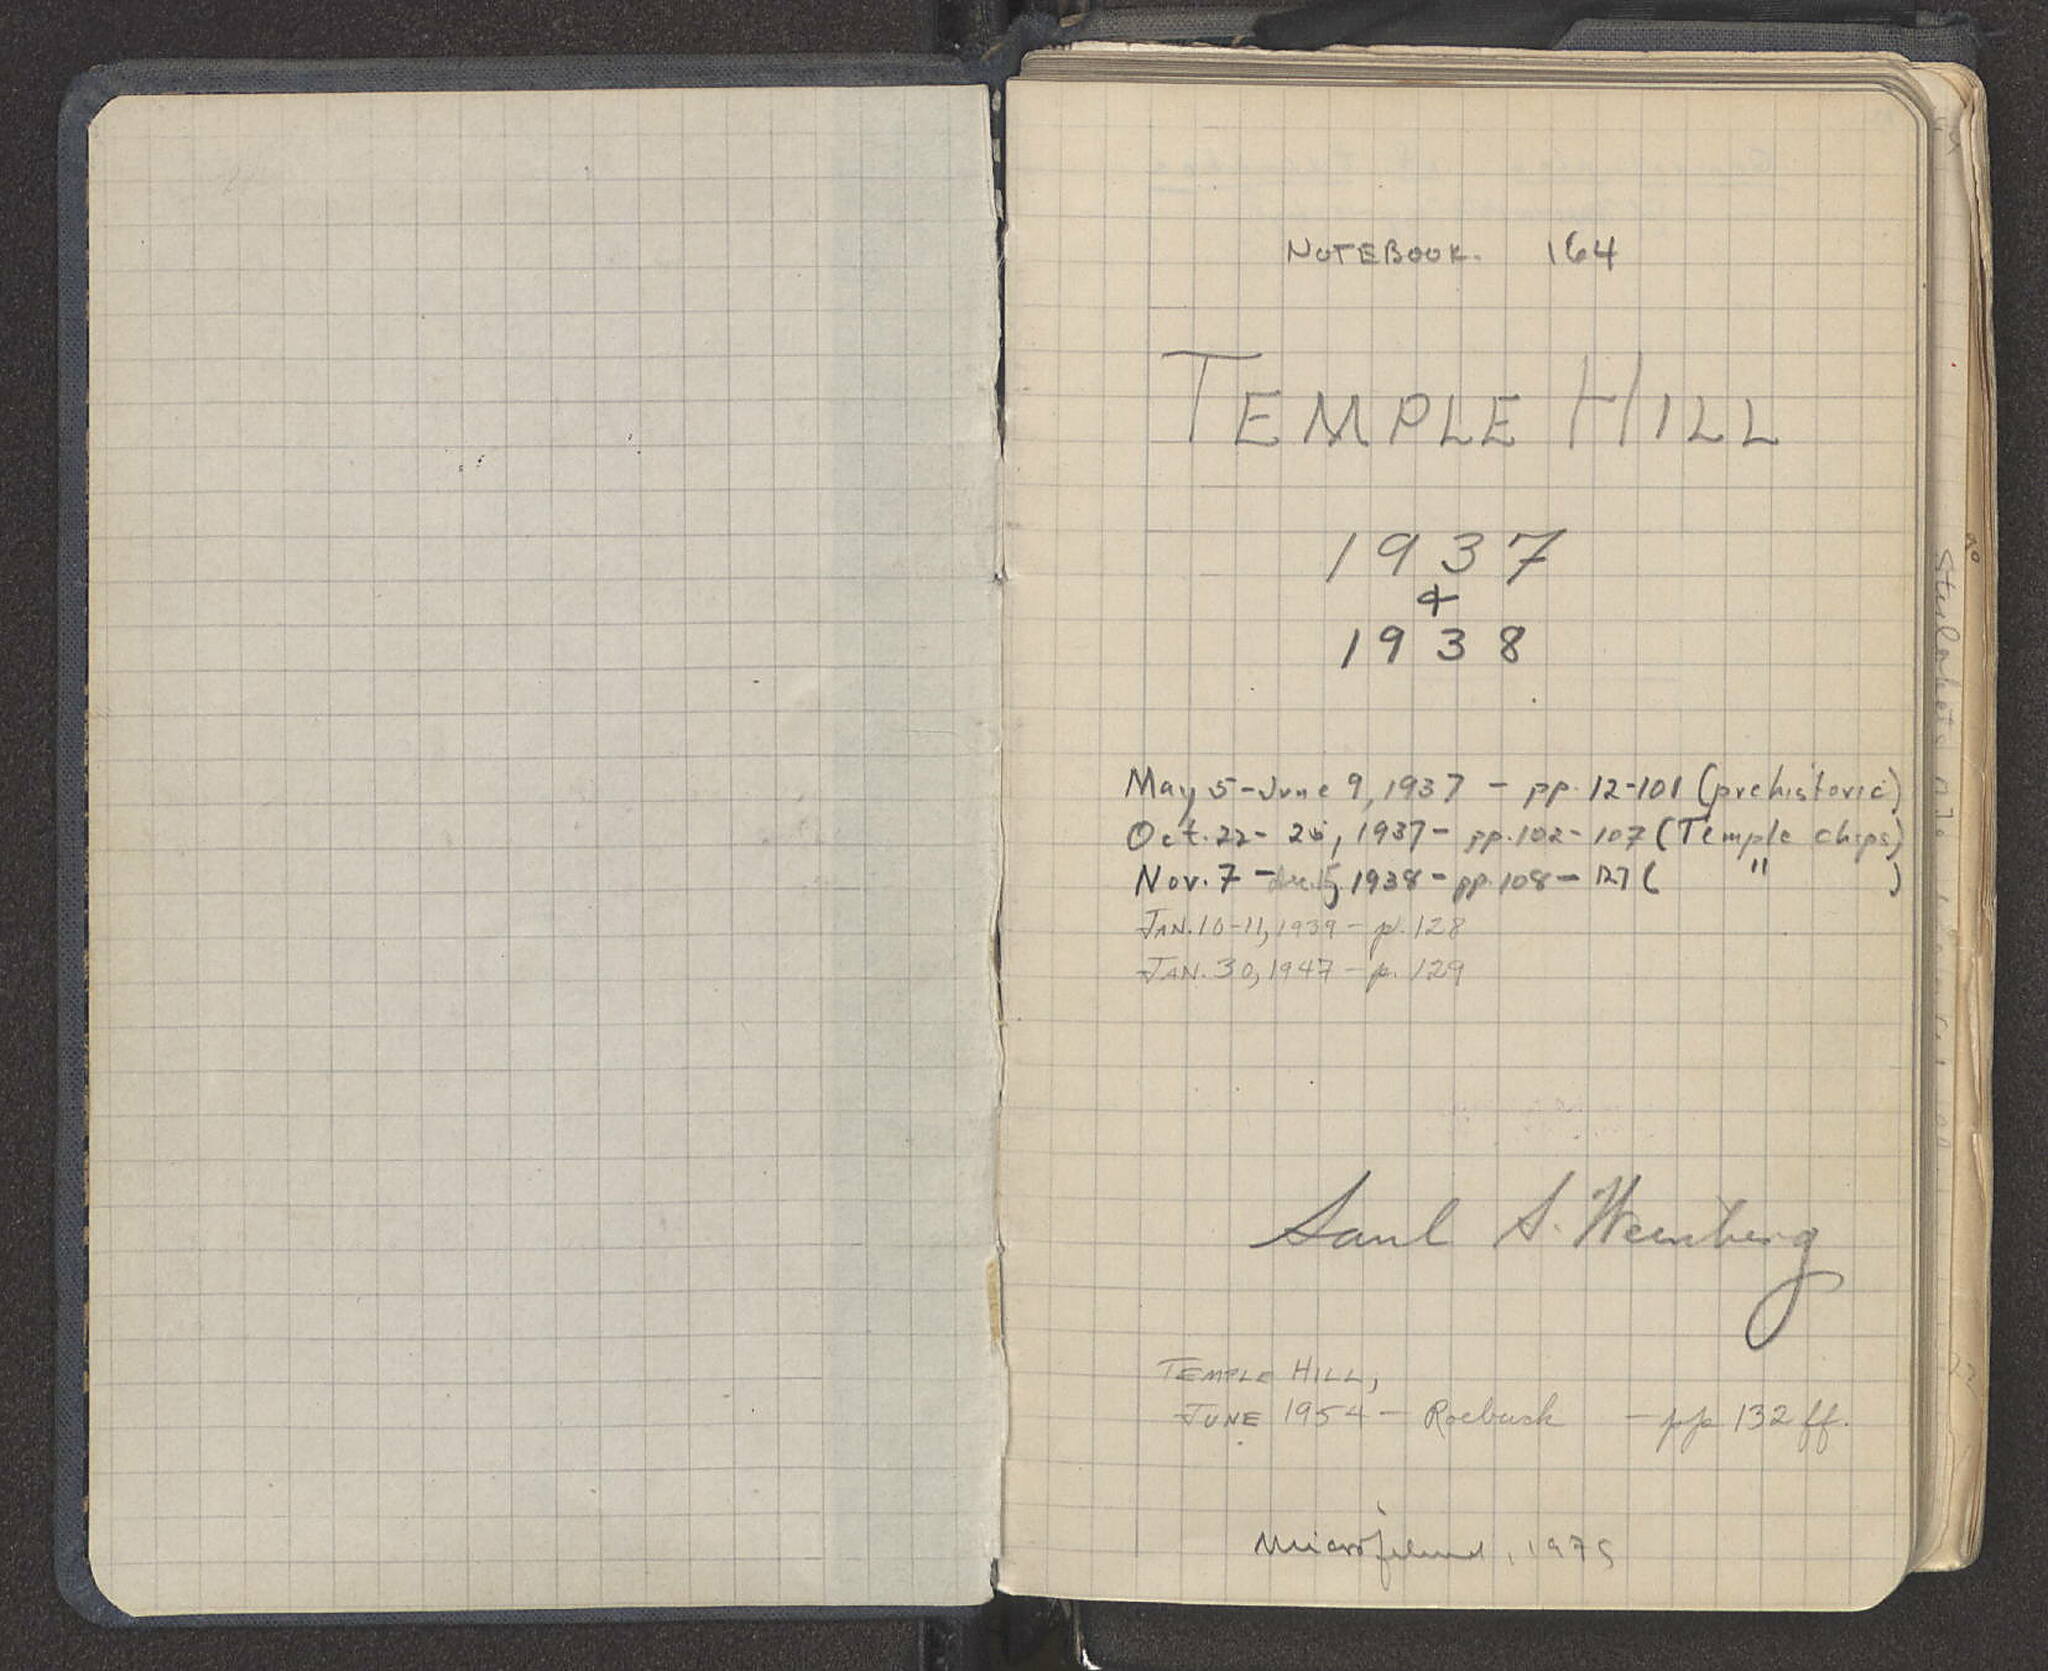 NOTEBOOK. 164
TEMPLE HILL
1937
+
1938
May 5-June 9, 1937 - pp. 12-101 (prehistoric)
Oct. 22- 26, 1937- pp. 102-107 (Temple chips)
Nov. 7 - Dec. 15, 1938 - pp. 108-127 ( " )
JAN. 10-11, 1939 - p. 128
JAN. 30, 1947 - p. 129
Saul S. Weinberg
TEMPLE HILL,
JUNE 1954 - Roebuck - pp 132 ff.
Microfilmed, 1975